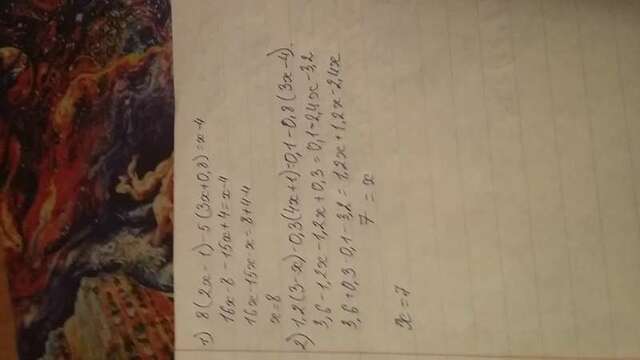 1) 8(2x-1)-5(3x+0,8)=x-4
16x-8-15x+4=x-4
16x-15x-x=8+4-4
x=8
2) 1,2(3-x)-0,3(4x+1)=0,1-0,8(3x-4).
3,6-1,2x-1,2x+0,3=0,1-2,4x-3,2
3,6+0,3-0,1-3,2=1,2x+1,2x-2,4x
7 = x
x=7